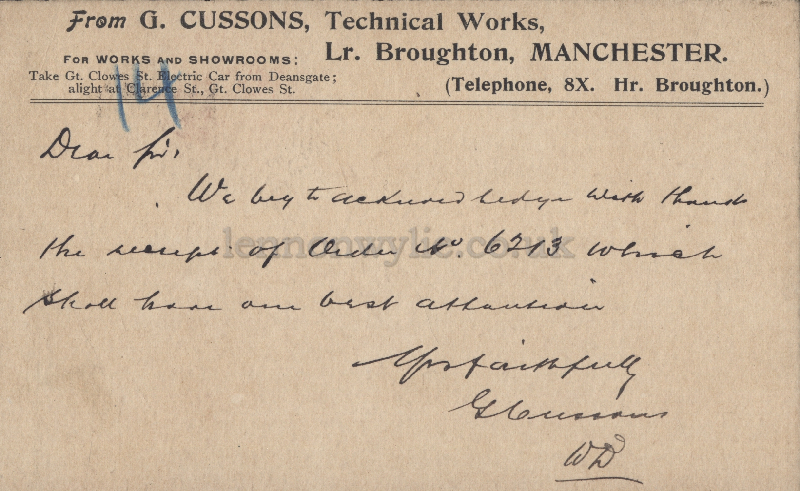 From G. CUSSONS, Technical Works,
Lr. Broughton, MANCHESTER.
(Telephone, 8X. Hr. Broughton.)
FOR WORKS AND SHOWROOMS:
Take Gt. Clowes St. Electric Car from Deansgate;
alight at Clarence St., Gt. Clowes St.
14
Dear Sir,
We beg to acknowledge with thanks
the receipt of Order No. 6213 which
shall have our best attention
Yrs faithfully
G Cussons
WD
lennonwylie.co.uk